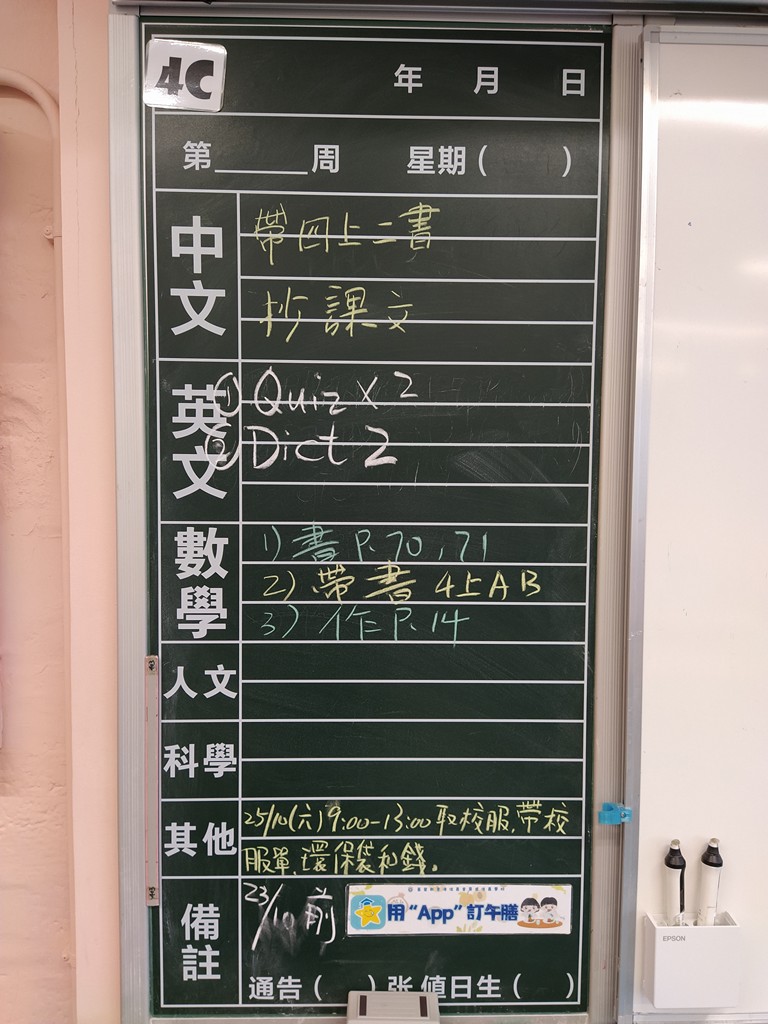 4C
年 月 日
第______周 星期( )
中文
帶四上二書
抄課文
英文
① Quiz x 2
② Dict 2
數學
1) 書 P. 70, 71
2) 帶書 4上AB
3) 作 P. 14
人文
科學
其他
25/10(六) 9:00-13:00 取校服,帶校
服單,環保袋和錢。
備註
23/10前
用“App”訂午膳
通告( )张 值日生( )
EPSON